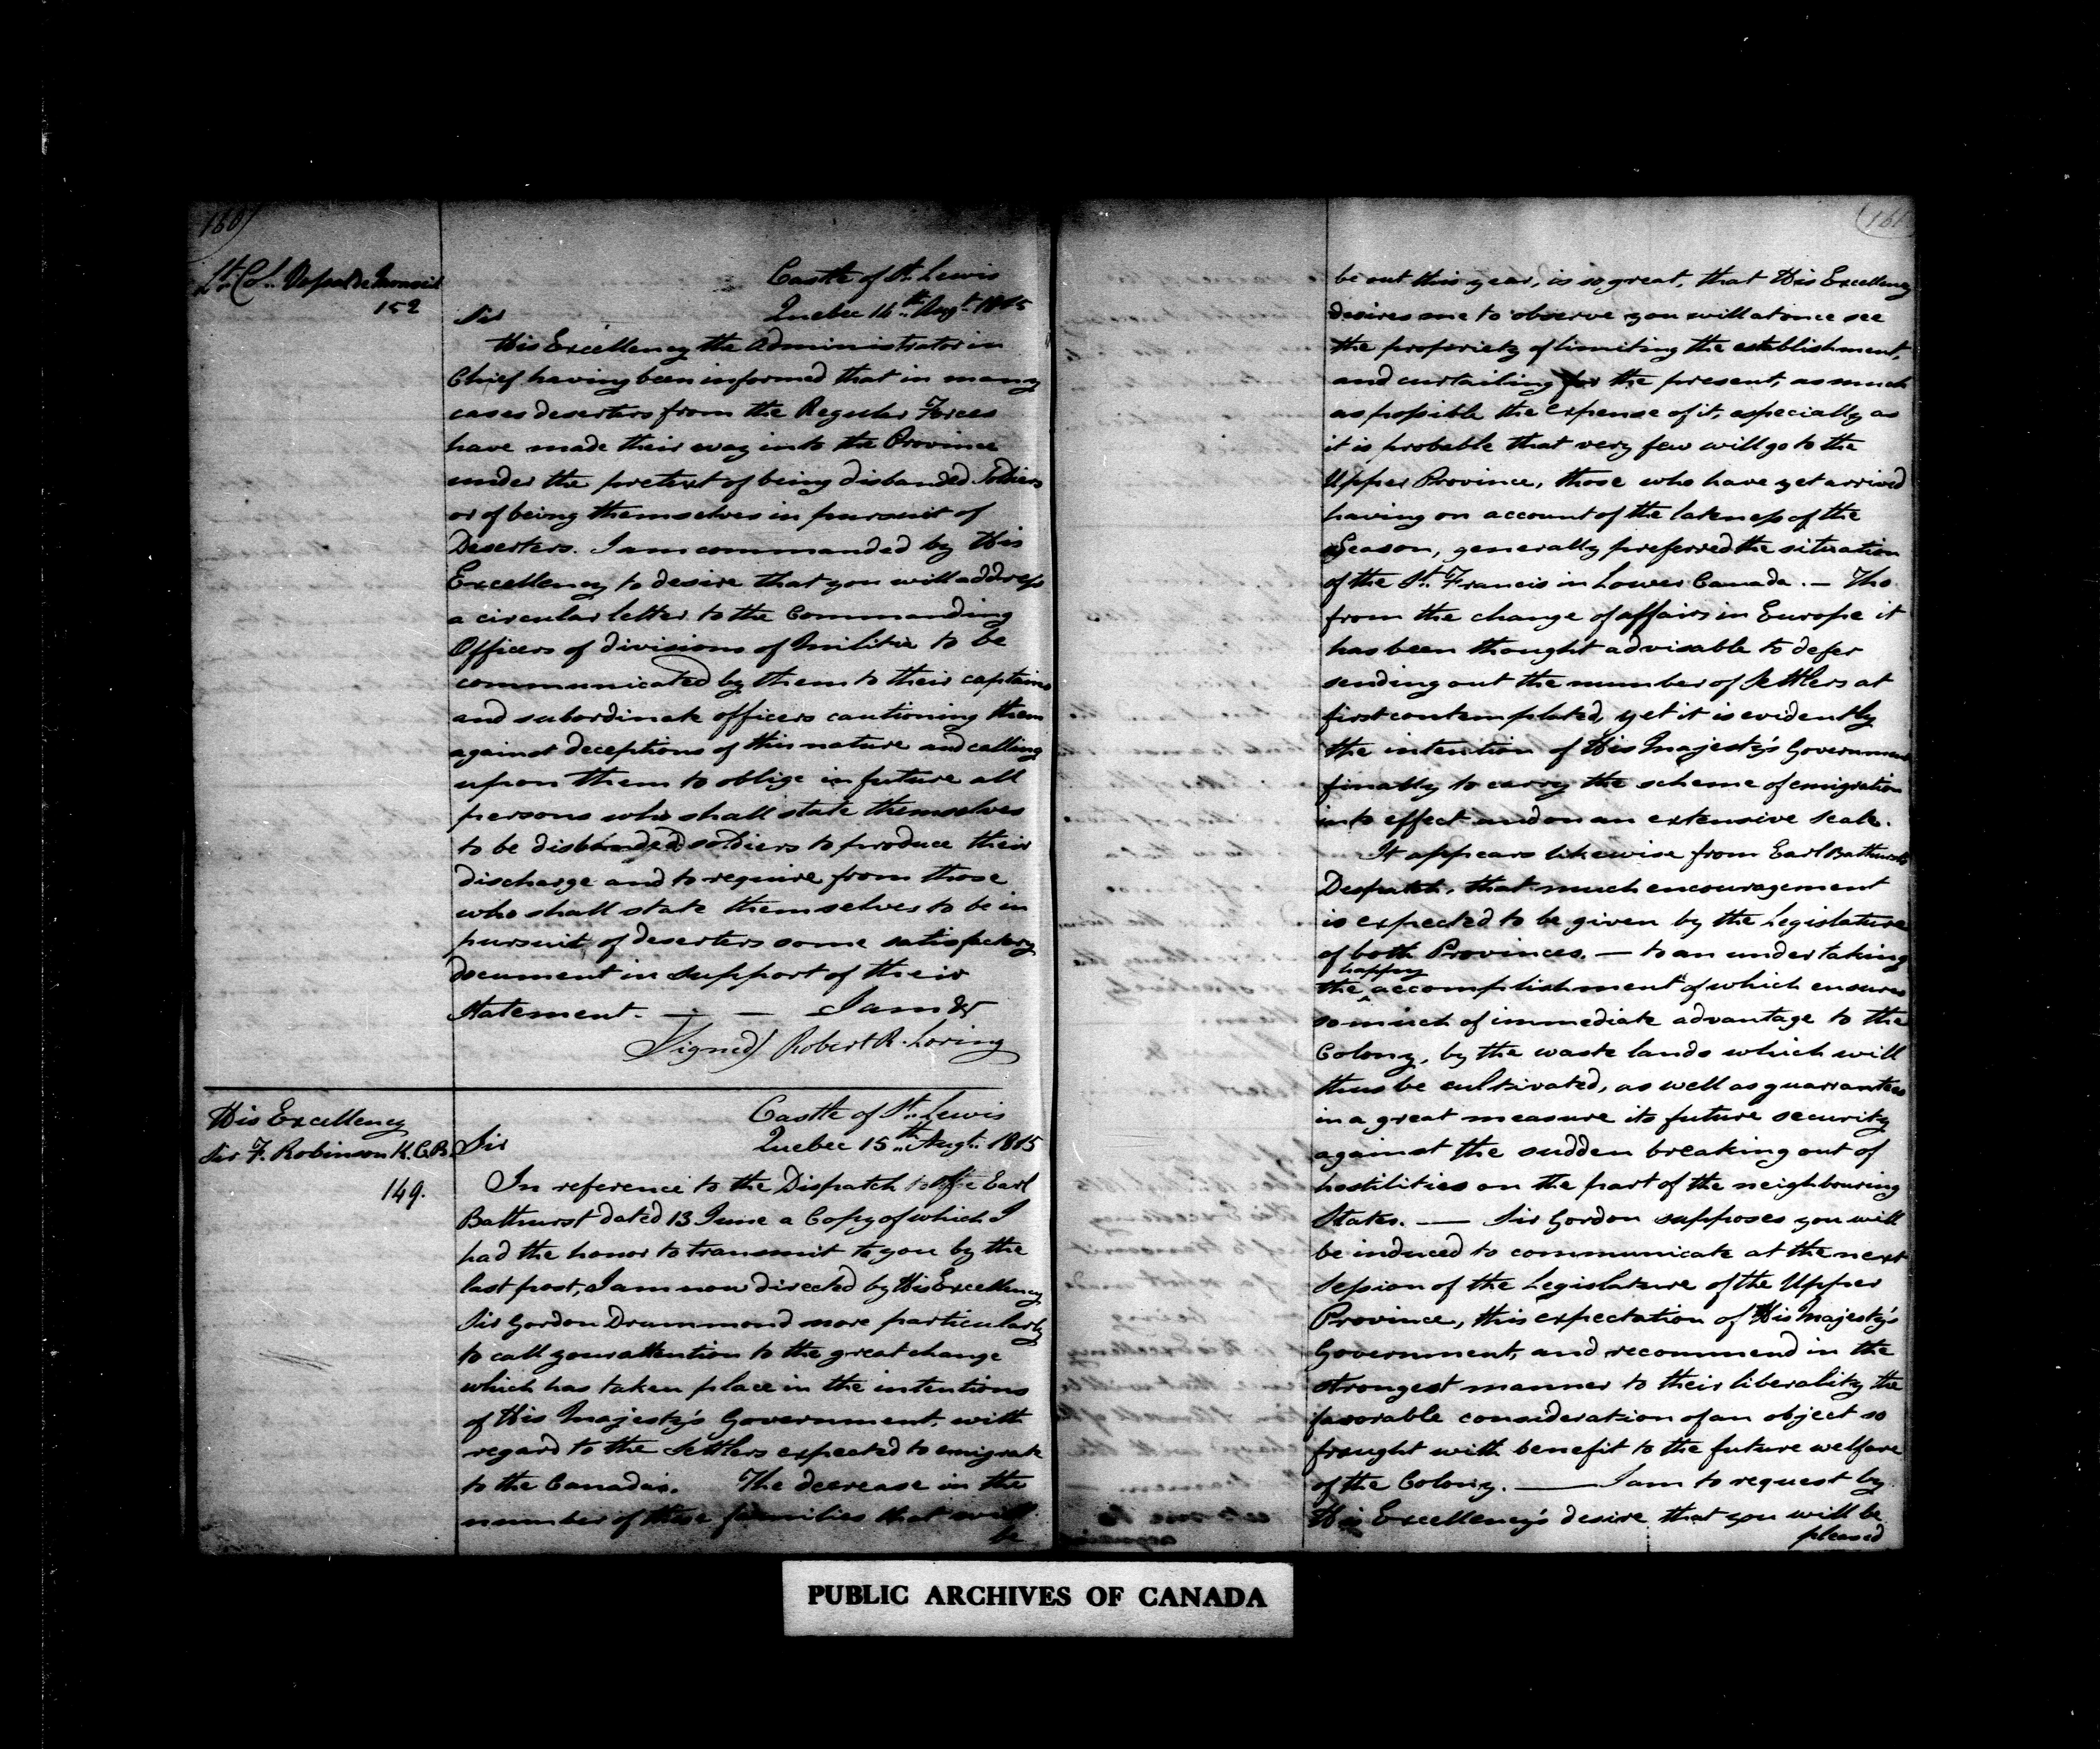 160)
Lt. Col. Vassal de Monviel
152
Castle of St. Lewis
Quebec 14th. Augt. 1815
Sir
His Excellency the Administrator in
Chief having been informed that in many
cases deserters from the Regular Forces
have made their way into the Province
under the pretext of being disbanded Soldiers
or of being themselves in pursuit of
Deserters. I am commanded by His
Excellency to desire that you will address
a circular letter to the Commanding
Officers of divisions of Militia to be
communicated by them to their captains
and subordinate officers cautioning them
against deceptions of this nature and calling
upon them to oblige in future all
persons who shall state themselves
to be disbanded soldiers to produce their
discharge and to require from those
who shall state themselves to be in
pursuit of deserters some satisfactory
document in support of their
statement. — — I am &c
Signed) Robert R. Loring
His Excellency
Sir F. Robinson K.C.B.
149.
Castle of St. Lewis
Quebec 15th. Augt. 1815
Sir
In reference to the Dispatch of the Earl
Bathurst dated 13 June a Copy of which I
had the honor to transmit to you by the
last post, I am now directed by His Excellency
Sir Gordon Drummond more particularly
to call your attention to the great change
which has taken place in the intentions
of His Majesty's Government, with
regard to the Settlers expected to emigrate
to the Canadas. The decrease in the
number of those families that will
be
161
be out this year, is so great, that His Excellency
desires me to observe you will at once see
the propriety of limiting the establishment,
and curtailing for the present, as much
as possible the expense of it, especially as
it is probable that very few will go to the
Upper Province, those who have yet arrived
having on account of the lateness of the
Season, generally preferred the situation
of the St. Francis in Lower Canada. — Tho
from the change of affairs in Europe it
has been thought advisable to defer
sending out the number of Settlers at
first contemplated, yet it is evidently
the intention of His Majesty's Government
finally to carry the scheme of emigration
into effect and on an extensive scale.
It appears likewise from Earl Bathursts
Despatch, that much encouragement
is expected to be given by the Legislature
of both Provinces. — to an undertaking
happy
the accomplishment of which ensures
so much of immediate advantage to the
Colony, by the waste lands which will
thus be cultivated, as well as guarrantees
in a great measure its future security
against the sudden breaking out of
hostilities on the part of the neighbouring
States. — Sir Gordon supposes you will
be induced to communicate at the next
Session of the Legislature of the Upper
Province, this expectation of His Majesty's
Government, and recommend in the
strongest manner to their liberality the
favorable consideration of an object so
fraught with benefit to the future welfare
of the Colony. — I am to request by
His Excellency's desire that you will be
pleased
PUBLIC ARCHIVES OF CANADA